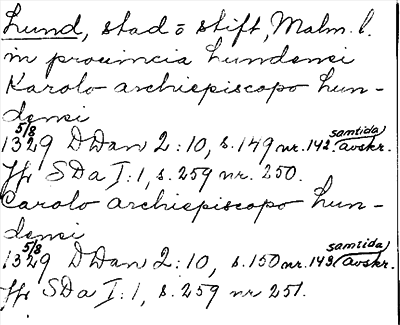 Lund, stad o stift, Malm. l.
in prouincia Lundensi
Karolo archiepiscopo Lun-
densi
1329 5/8 DDan 2:10, s. 149 nr. 142 samtida avskr.
Jfr SDa I:1, s. 259 nr. 250.
Carolo archiepiscopo Lun-
densi
1329 5/8 DDan 2:10, s. 150 nr. 143 samtida avskr.
Jfr SDa I:1, s. 259 nr 251.